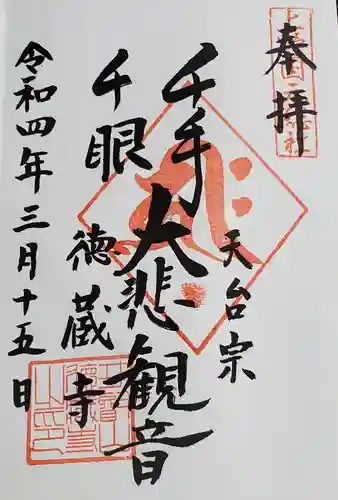 奉拝
天台宗
千手
千眼
大悲観音
徳蔵寺
令和四年三月十五日